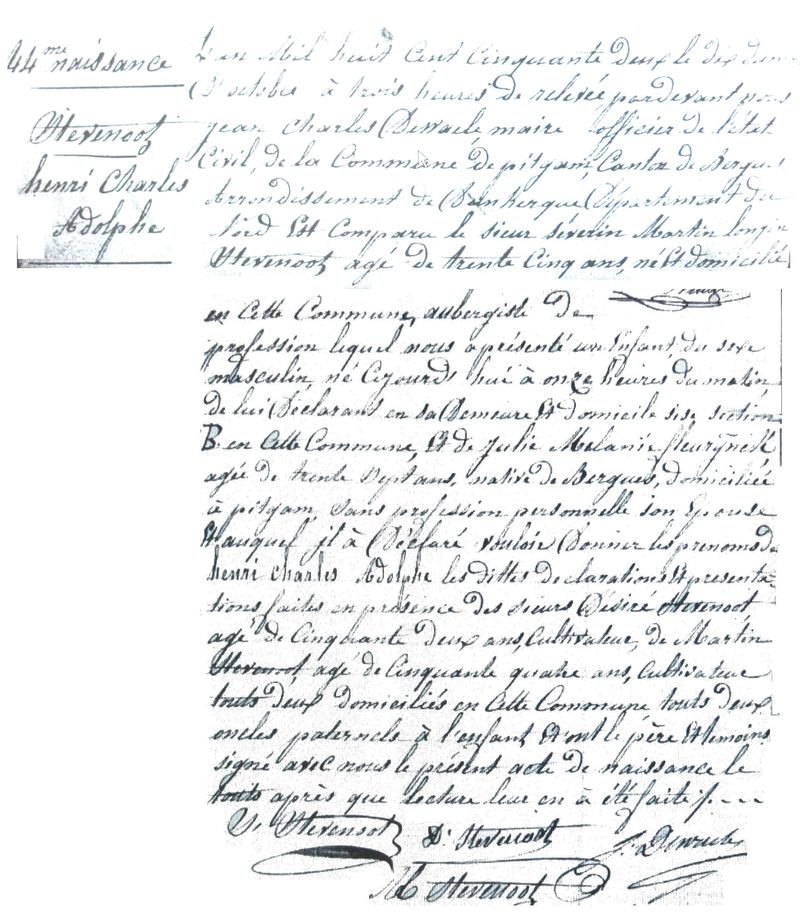 44me naissance
Stevenoot
henri Charles
Adolphe
L'an Mil huit Cent Cinquante deux le dix
D'octobre à trois heures de relevée pardevant nous
jean Charles Dewaele maire officier de l'état
Civil, de la Commune de pitgam, Canton de Bergues
Arrondissement de Dunkerque Département du
Nord Est Comparu le sieur séverin Martin longin
Stevenoot agé de trente Cinq ans, né Et domicilié
en Cette Commune, aubergiste de
profession lequel nous a présenté un Enfant du sexe
masculin, né Cejourd'hui à onze heures du matin,
de lui Déclarant en sa Demeure Et domicile sise section
B. en Cette Commune, Et de Julie Melanie fleurynck,
agée de trente sept ans, native de Bergues, domiciliée
à pitgam, sans profession personnelle son Epouse
Et auquel il à Déclaré vouloir Donner les prenoms de
henri Charles Adolphe les dittes déclarations Et présenta-
tions faites en présence des sieurs Désiré Stevenoot
agé de Cinquante deux ans, Cultivateur, de Martin
Stevenoot agé de Cinquante quatre ans, Cultivateur
touts deux domiciliés en Cette Commune touts deux
oncles paternels à l'enfant, Et ont le père Et temoins
signé avec nous le présent acte de naissance le
touts après que lecture leur en à été faite /. - - -
S. Stevenoot D. Stevenoot J. Dewaele
M Stevenoot